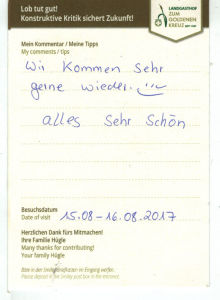 Lob tut gut!
Konstruktive Kritik sichert Zukunft!
LANDGASTHOF
ZUM
GOLDENEN
KREUZ
Mein Kommentar / Meine Tipps
My comments / tips
Wir kommen sehr
gerne wieder.
alles sehr schön
Besuchsdatum
Date of visit 15.08-16.08.2017
Herzlichen Dank fürs Mitmachen!
Ihre Familie Hügle
Many thanks for contributing!
Your family Hügle
Bitte in den Smileybriefkasten im Eingang werfen.
Please deposit in the Smiley post box in the entrance.